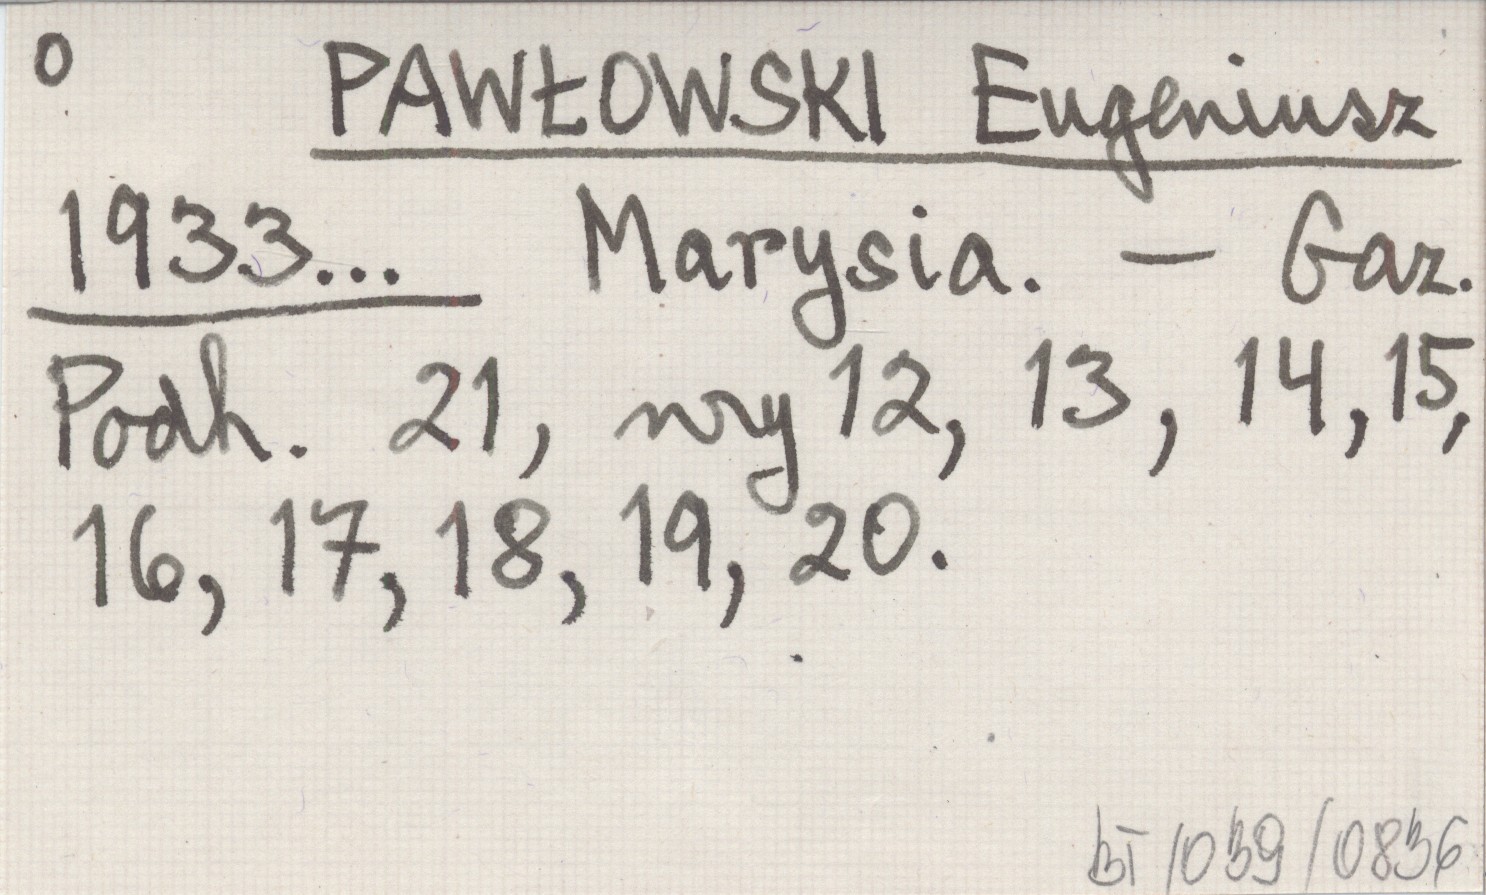 O PAWŁOWSKI Eugeniusz
1933... Marysia. — Gaz.
Podh. 21, nry 12, 13, 14, 15,
16, 17, 18, 19, 20.
BT/039/0836